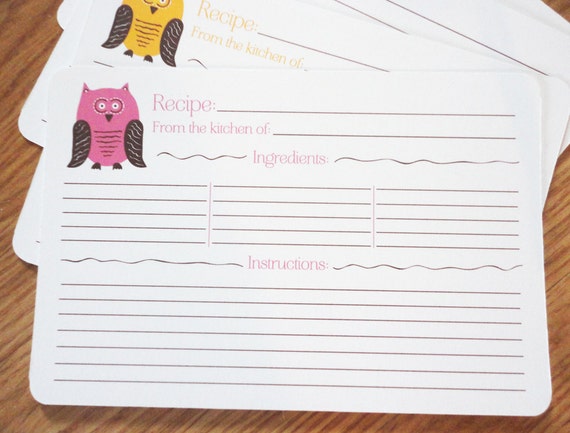 Recipe:
From the kitchen of:
Recipe:
From the kitchen of:
Ingredients:
Instructions: